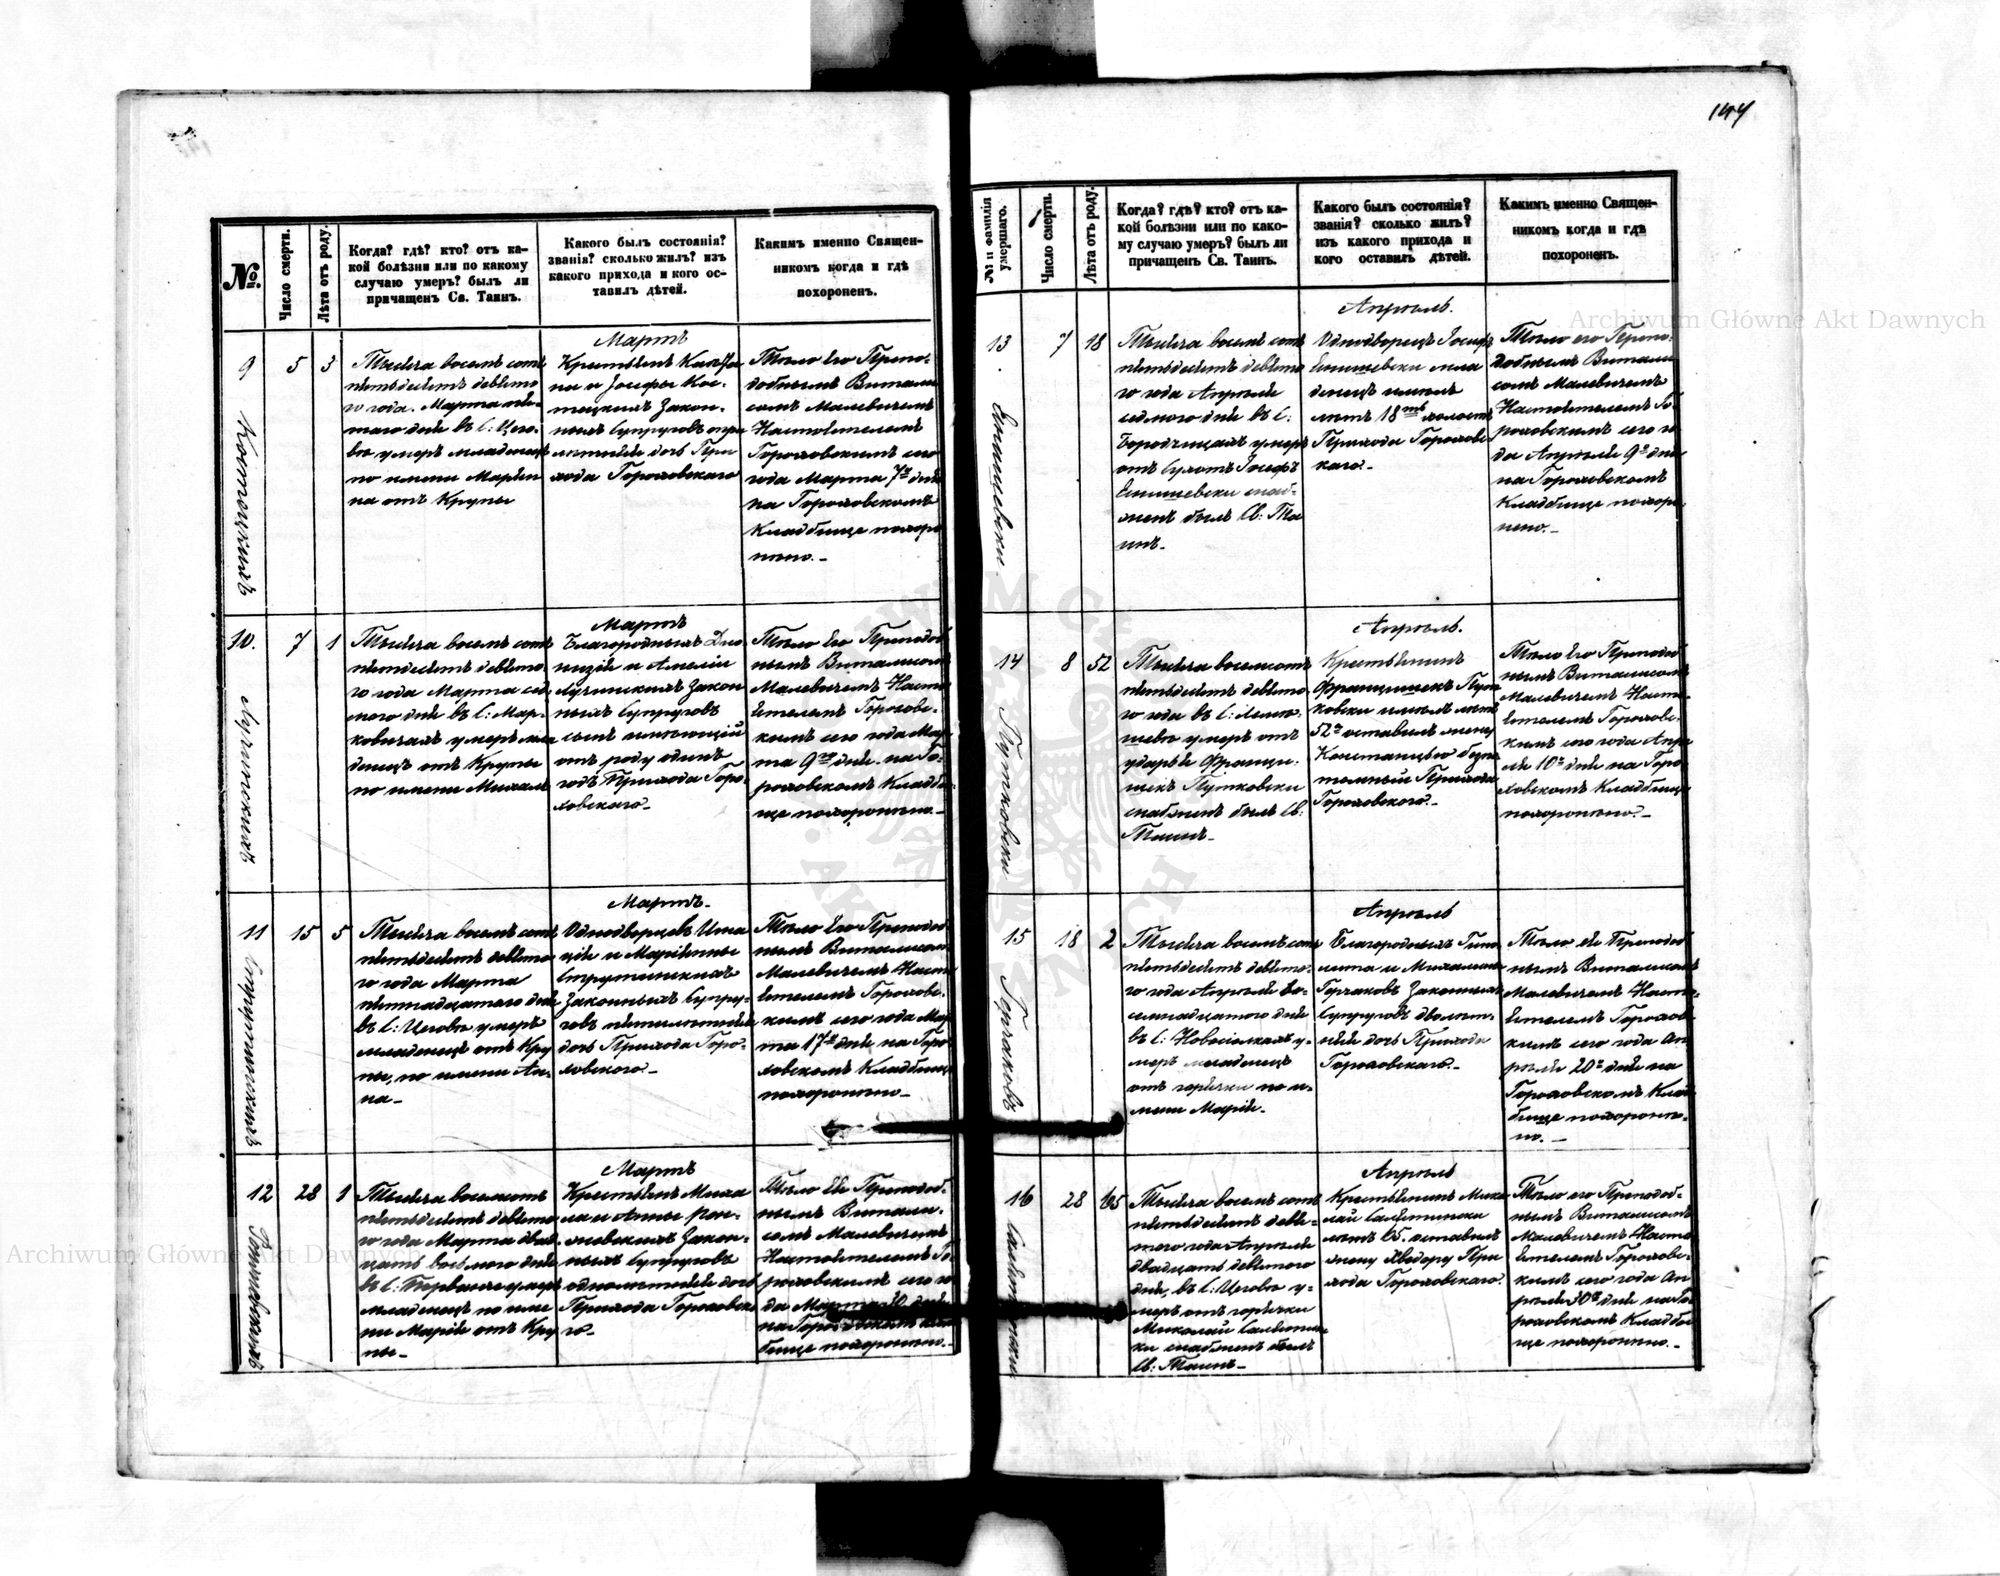 144
№.
Число смерти.
Лѣта отъ роду.
Когда? гдѣ? кто? отъ ка-
кой болѣзни или по какому
случаю умеръ? былъ ли
причащенъ Св. Таинъ.
Какого былъ состоянія?
званія? сколько жилъ? изъ
какого прихода и кого ос-
тавилъ дѣтей.
Какимъ именно Священ-
никомъ когда и гдѣ
похороненъ.
9
5
3
Тысяча восемъ сотъ
пятьдесятъ девято
го года. Марта пя-
таго дня въ с: Цего-
вѣ умеръ младенецъ
по имени Маріян
на отъ Крупы
Мартъ
на и Іосефы Кос-
тецкихъ Закон-
ныхъ Супруговъ
лѣтняя дочь При
хода Гороховскаго
Тѣло Его Препо-
добнымъ Витали
сомъ Малевичемъ
Настоятелемъ
Гороховскимъ сего
года Марта 7го дня
на Гороховскомъ
Кладбище похоро
нено.-
10.
7
1
Тысяча восемъ сотъ
пятьдесятъ девято
го года Марта сед
маго дня въ с: Мар-
ковичахъ умеръ мла
денецъ отъ Крупы
по имени Михалъ
Мартъ
Благородныхъ Дио
низія и Амеліи
Лучинскихъ Закон
ныхъ Супруговъ
сынъ имеющій
отъ роду одинъ
годъ Прихода Горо-
ховскаго.-
Лучинскихъ
Тѣло Его Преподоб
нымъ Виталисомъ
Малевичемъ Насто
ятелемъ Горохов-
скимъ сего года Мар
та 9го дня на Го-
роховскомъ Кладби
ще похоронено.-
11
15
5
Тысяча восемъ сотъ
пятьдесятъ девято
го года Марта
пятнадцатаго дня
въ с: Цеговѣ умеръ
младенецъ отъ Кру
пы, по имени Ан-
на.-
Мартъ.
Однодворцевъ Игна
ція и Маріянны
Струтинскихъ
Законныхъ Супру-
говъ пятилѣтняя
дочь Прихода Горо-
ховскаго.-
Струтинскихъ
Тѣло Его Преподоб
нымъ Виталисомъ
Малевичемъ Насто
ятелемъ Горохов-
скимъ сего года Мар
та 17го дня на Горо
ховскомъ Кладбище
похоронено.-
12
28
1
Тысяча восемсотъ
пятьдесятъ девято
го года Марта двад
цать восьмого дня
умеръ
младенецъ по име
ни Марія отъ Кру
пы.-
Мартъ
Крестьянъ Миха
ла и Анны
Закон-
ныхъ Супруговъ
однолѣтняя дочь
Прихода Гороховска
го.-
Тѣло Ея Преподоб-
нымъ Витали-
сомъ Малевичемъ
Настоятелемъ Го-
роховскимъ сего го
да Марта 30 дня
на Гороховскомъ Клад
бище похоронено.-
№ и фамилія
умершаго.
Число смерти.
Лѣта отъ роду.
Когда? гдѣ? кто? отъ ка-
кой болѣзни или по како-
му случаю умеръ? былъ ли
причащенъ Св. Таинъ.
Какого былъ состоянія?
званія? сколько жилъ?
изъ какого прихода и
кого оставилъ дѣтей.
Какимъ именно Священ-
никомъ когда и гдѣ
похороненъ.
13
7
18
Тысяча восемъ сотъ
пятьдесятъ девято
го года Апрѣля
седмого дня въ с:
умеръ
отъ Сухотъ Іосефъ
Янишевски снаб-
женъ былъ Св: Та
инъ.-
Апрѣль.
Однодворецъ Іосефъ
Янишевски мла
денецъ имѣлъ
лѣтъ 18ть холостъ
Прихода Горохов
скаго.-
Янишевски
Тѣло его Препо-
добнымъ Витали
сомъ Малевичемъ
Настоятелемъ Го-
роховскимъ сего го
да Апрѣля 9го дня
на Гороховскомъ
Кладбище похоро-
нено.-
14
8
52
Тысяча восемсотъ
пятьдесятъ девято-
го года въ с:
умеръ отъ
удара Франци-
шекъ Путковски
снабженъ былъ Св:
Таинъ.-
Апрѣль.
Крестьянинъ
Францишекъ Пут
ковски имѣлъ лѣтъ
52 оставилъ жену
Констанцію
Прихода
Гороховскаго.-
Путковски
Тѣло Его Преподоб
нымъ Виталисомъ
Малевичемъ Насто
ятелемъ Горохов-
скимъ сего года Апрѣ
ля 10го дня на Горо
ховскомъ Кладбище
похоронено.-
15
18
2
Тысяча восемъ сотъ
пятьдесятъ девято-
го года Апрѣля во-
семнадцатаго дня
въ с: Новосіолкахъ у-
меръ младенецъ
отъ горячки по и-
мени Марія.-
Апрѣль
Благородныхъ Гипо
лита и Михалины
Горчаковъ Законныхъ
Супруговъ дволѣт-
няя дочь Прихода
Гороховскаго.-
Горчаковъ
Тѣло ея Преподоб
нымъ Виталисомъ
Малевичемъ Насто
ятелемъ Горохов
скимъ сего года Ап
рѣля 20го дня на
Гороховскомъ Клад
бище похороне-
но.-
16
28
65
Тысяча восемъ сотъ
пятьдесятъ девя-
того года Апрѣля
двадцать девятого
дня, въ с: Цеговѣ у-
меръ отъ горячки
Миколай
ки снабженъ былъ
Св: Таинъ.-
Апрѣль
Крестьянинъ Мико
лай
лѣтъ 65. оставилъ
жену Хведору При
хода Гороховскаго
Тѣло его Преподоб-
нымъ Виталисомъ
Малевичемъ Насто
ятелемъ Горохов-
скимъ сего года Ап
рѣля 30го дня на Го
роховскомъ Кладби
ще похоронено.-
Archiwum Główne Akt Dawnych
Archiwum Główne Akt Dawnych